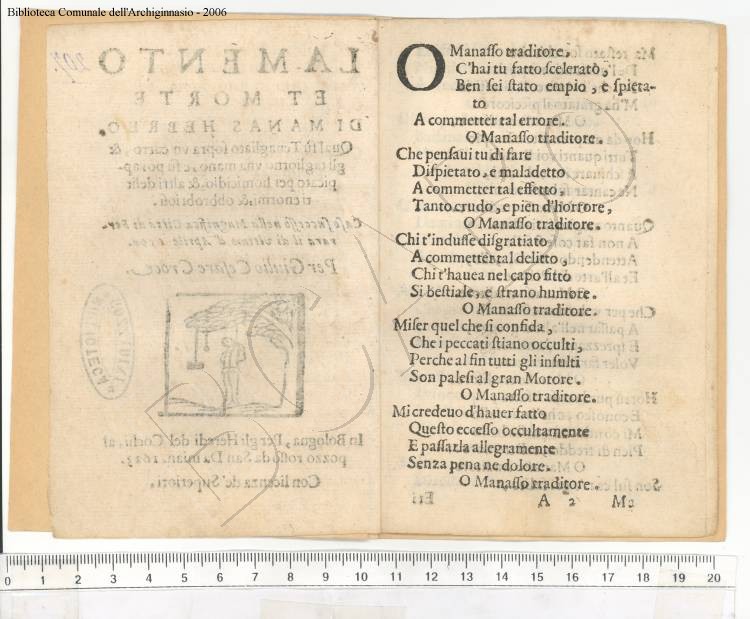 Biblioteca Comunale dell'Archiginnasio - 2006
LAMENTO
ET MORTE
DI MANAS HEBREO.
Qual fù Tenagliato sopra vn carro, &
gli tagliorno vna mano, e fù poi ap-
piccato per homicidio, & altri delit
ti enormi, & obbrobriosi.
Per Giulio Cesare Croce.
In Bologna, Per gli Heredi del Cochi, al
pozzo rosso da San Damian. 1623.
Con licenza de' Superiori.
O Manasso traditore,
C'hai tu fatto scelerato,
Ben sei stato empio, e spieta-
to
A commetter tal errore.
O Manasso traditore.
Che pensaui tu di fare
Dispietato, e maladetto
A commetter tal effetto,
Tanto crudo, e pien d'horrore,
O Manasso traditore.
Chi t'indusse disgratiato
A commetter tal delitto,
Chi t'hauea nel capo fitto
Si bestiale, e strano humore.
O Manasso traditore.
Miser quel che si confida,
Che i peccati stiano occulti,
Perche al fin tutti gli insulti
Son palesi al gran Motore.
O Manasso traditore.
Mi credeuo d'hauer fatto
Questo eccesso occultamente
E passarla allegramente
Senza pena ne dolore.
O Manasso traditore.
A 2
0 1 2 3 4 5 6 7 8 9 10 11 12 13 14 15 16 17 18 19 20